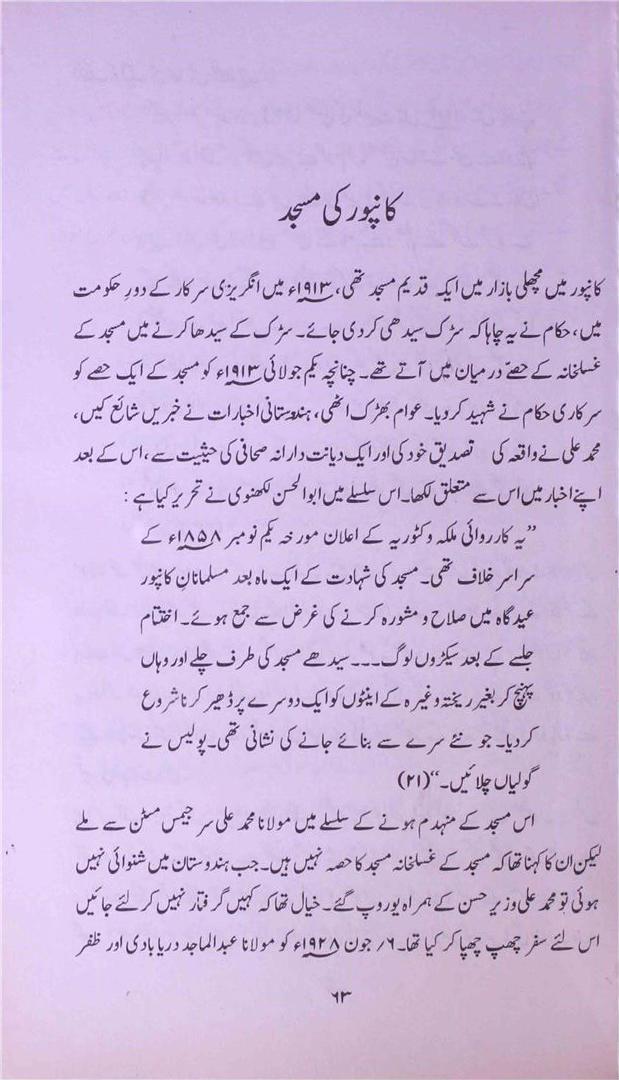 کانپور کی مسجد
کانپور میں مچھلی بازار میں ایک قدیم مسجد تھی، ۱۹۱۳ء میں انگریزی سرکار کے دورِ حکومت
میں، حکام نے یہ چاہا کہ سڑک سیدھی کر دی جائے۔ سڑک کے سیدھا کرنے میں مسجد کے
غسلخانہ کے حصّے درمیان میں آتے تھے۔ چنانچہ یکم جولائی ۱۹۱۳ء کو مسجد کے ایک حصے کو
سرکاری حکام نے شہید کر دیا۔ عوام بھڑک اٹھی، ہندوستانی اخبارات نے خبریں شائع کیں،
محمد علی نے واقعہ کی تصدیق خود کی اور ایک دیانت دارانہ صحافی کی حیثیت سے، اس کے بعد
اپنے اخبار میں اس سے متعلق لکھا۔ اس سلسلے میں ابوالحسن لکھنوی نے تحریر کیا ہے :
”یہ کارروائی ملکہ وکٹوریہ کے اعلان مورخہ یکم نومبر ۱۸۵۸ء کے
سراسر خلاف تھی۔ مسجد کی شہادت کے ایک ماہ بعد مسلمانانِ کانپور
عیدگاہ میں صلاح و مشورہ کرنے کی غرض سے جمع ہوئے۔ اختتام
جلسے کے بعد سیکڑوں لوگ۔۔۔ سیدھے مسجد کی طرف چلے اور وہاں
پہنچ کر بغیر ریختہ وغیرہ کے اینٹوں کو ایک دوسرے پر ڈھیر کرنا شروع
کر دیا۔ جو نئے سرے سے بنائے جانے کی نشانی تھی۔ پولیس نے
گولیاں چلائیں۔“(۲۱)
اس مسجد کے منہدم ہونے کے سلسلے میں مولانا محمد علی سر جیمس مسٹن سے ملے
لیکن ان کا کہنا تھا کہ مسجد کے غسلخانہ مسجد کا حصہ نہیں ہیں۔ جب ہندوستان میں شنوائی نہیں
ہوئی تو محمد علی وزیر حسن کے ہمراہ یوروپ گئے۔ خیال تھا کہ کہیں گرفتار نہیں کر لئے جائیں
اس لئے سفر چھپ چھپا کر کیا تھا۔ ۶؍ جون ۱۹۲۸ء کو مولانا عبدالماجد دریابادی اور ظفر
۶۳